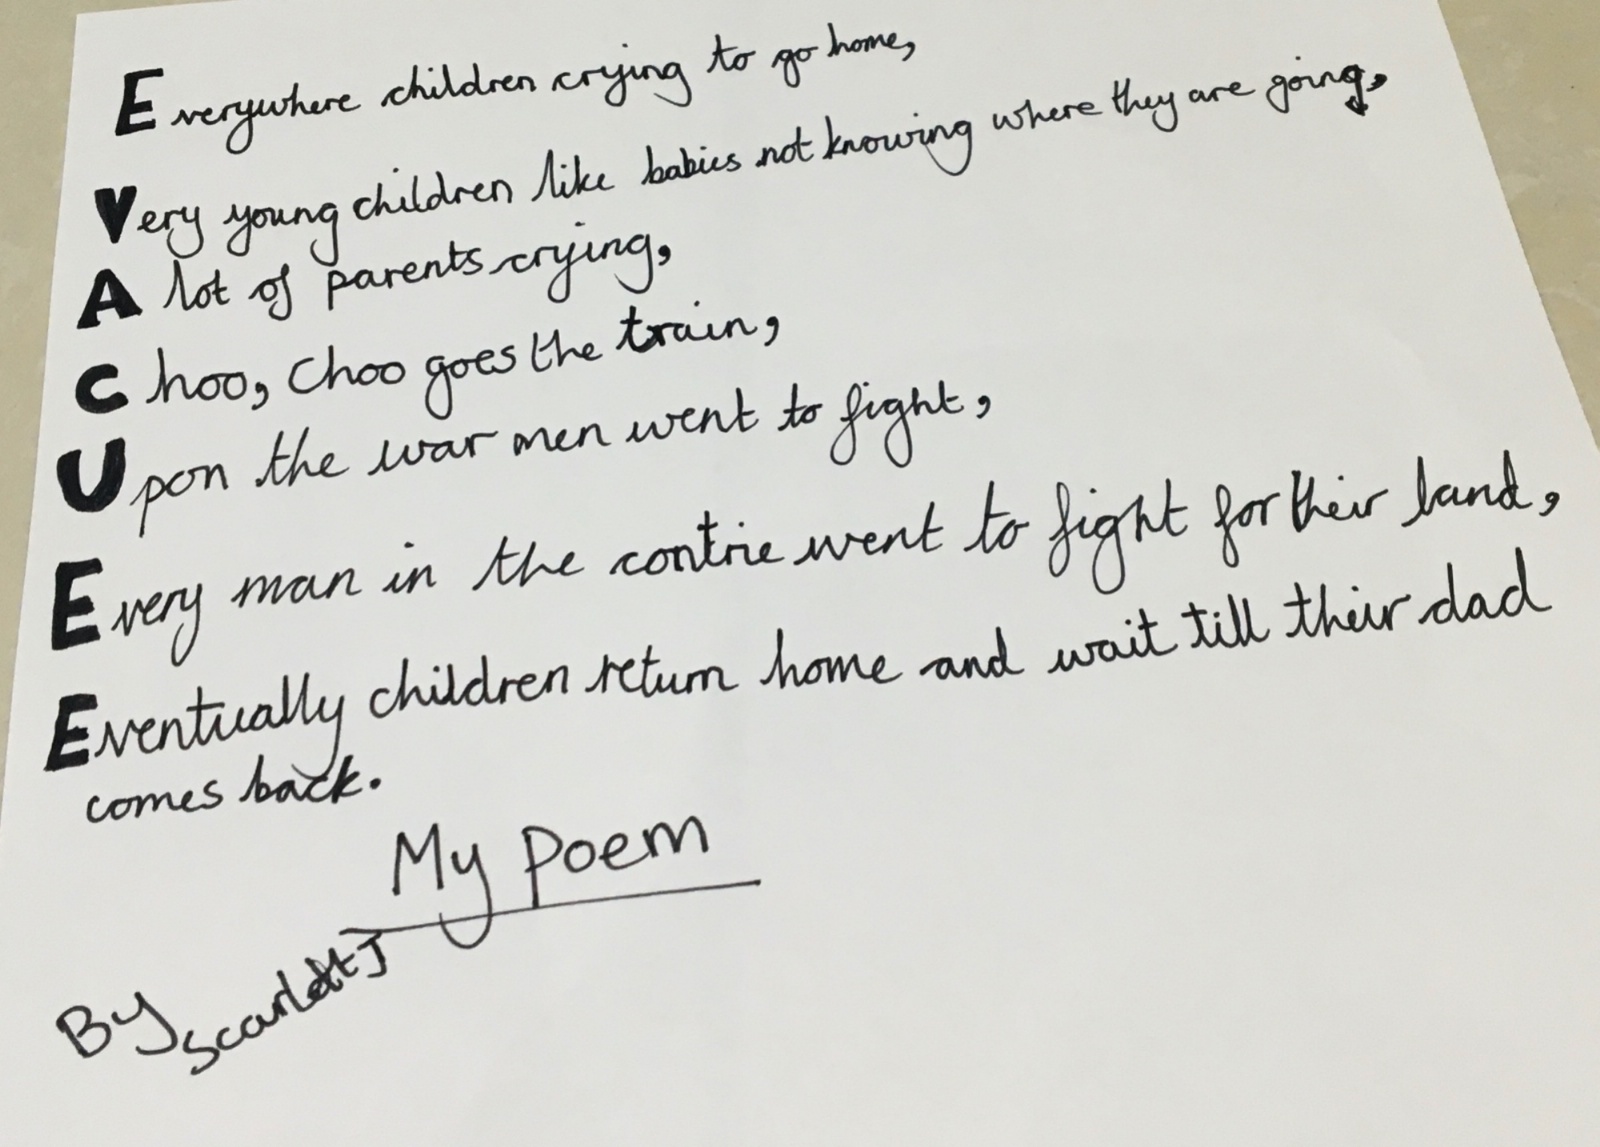 Everywhere children crying to go home,
Very young children like babies not knowing where they are going,
A lot of parents crying,
Choo, Choo goes the train,
Upon the war men went to fight,
Every man in the contrie went to fight for their land,
Eventually children return home and wait till their dad
comes back.
My Poem
By Scarlett J